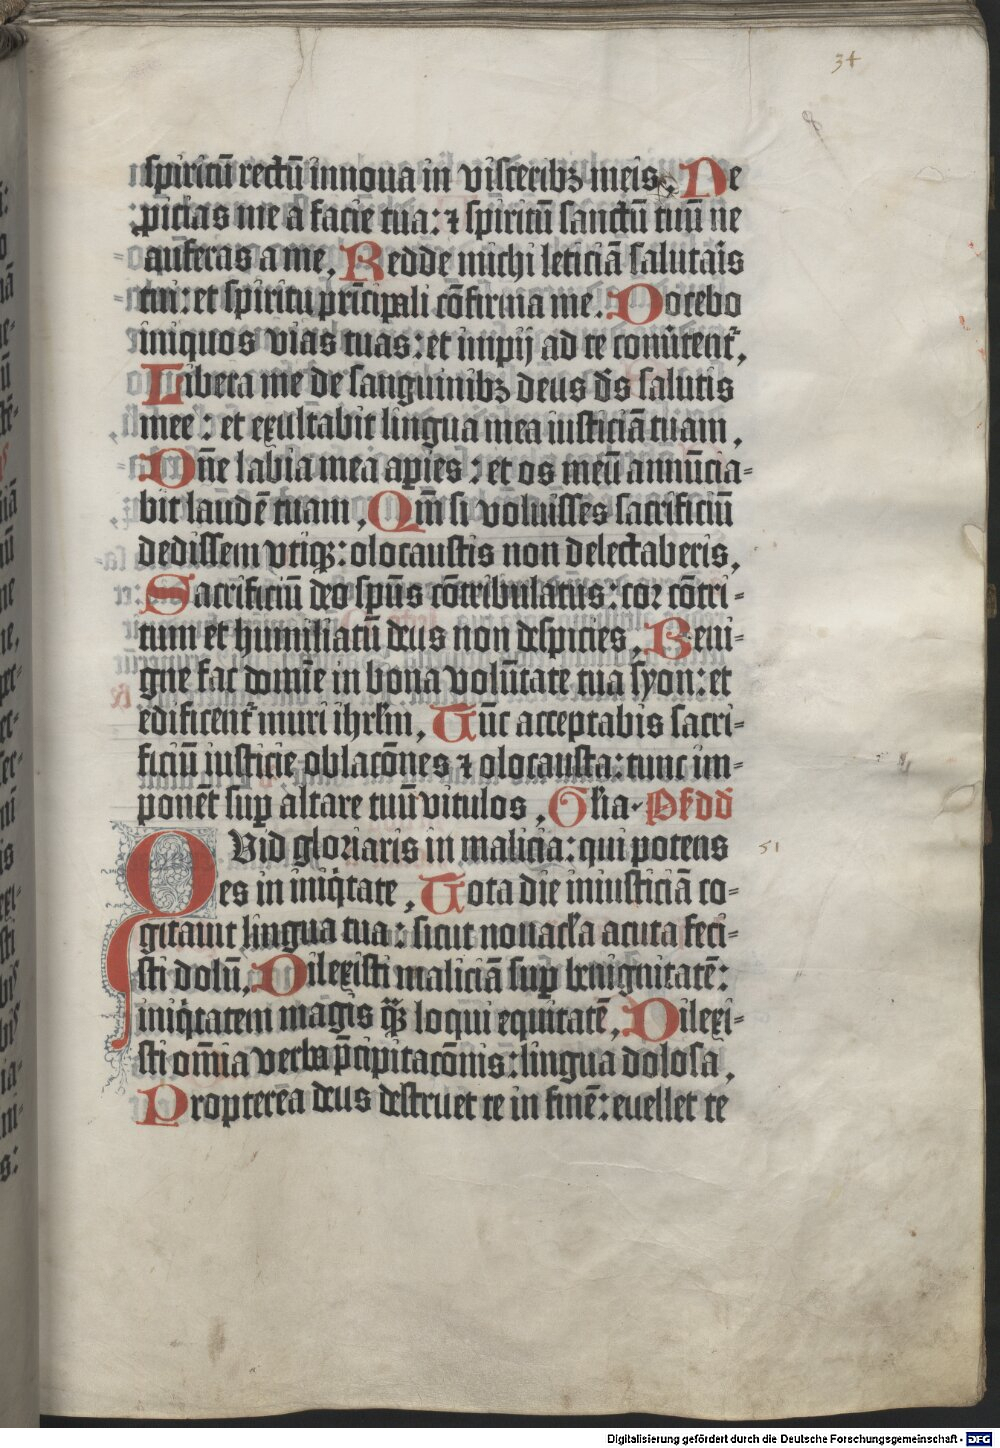 34
spiritū rectū innoua in visceribꝫ meis. Ne
ꝓicias me a facie tua: ⁊ spiritū sanctū tuū ne
auferas a me. Redde michi leticiā salutar̄is
tui: et spiritu prīcipali cōfirma me. Docebo
iniquos vias tuas: et impij ad te conu̾tent᷑.
Libera me de sanguinibꝫ deus de̅s salutis
mee: et exultabit lingua mea iusticiā tuam.
Dn̄e labia mea apies: et os meū annūcia-
bit laudē tuam. Qm̄ si voluisses sacrificiū
dedissem vtiqꝫ: olocaustis non delectaberis.
Sacrificiū deo spūs cōtribulatus: cor cōtri-
tum et humiliatū deus non despicies. Beni-
gne fac domīe in bona volūtate tua syon: et
edificent᷑ muri ihrl̄m. Tūc acceptabis sacri-
ficiū iusticie oblacōnes ⁊ olocausta: tunc im-
ponēt sup altare tuū vitulos. Gl̄ia.
QVid gloriaris in malicia: qui potens
51
es in iniq̇tate. Tota die iniusticiā co-
gitauit lingua tua: sicut nouacl̄a acuta feci-
sti dolū. Dilexisti maliciā sup benignitatē:
iniq̇tatem magis qꝫ loqui equitatē. Dilexi-
sti om̄ia verba p̄cipitacōnis: lingua dolosa.
Propterea deus destruet te in finē: euellet te
Digitalisierung gefördert durch die Deutsche Forschungsgemeinschaft - DFG